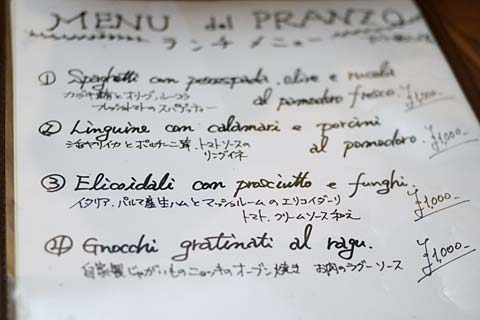 MENU del PRANZO
ランチメニュー
① Spaghetti con pescespada, olive e rucola
カジキ鮪とオリーブ、ルーコラ
フレッシュトマトのスパゲッティー
al pomodoro fresco. ¥1,000-
② Linguine con calamari e porcini
ヤリイカとポルチーニ茸、トマトソースの
リングイネ
al pomodoro. ¥1,000-
③ Elicoidali con prosciutto e funghi.
イタリア、パルマ産生ハムとマッシュルームのエリコイダーリ
トマトクリームソース和え ¥1,000-
④ Gnocchi gratinati al ragu.
自家製じゃがいものニョッキのオーブン焼き お肉のラグーソース
¥1,000-